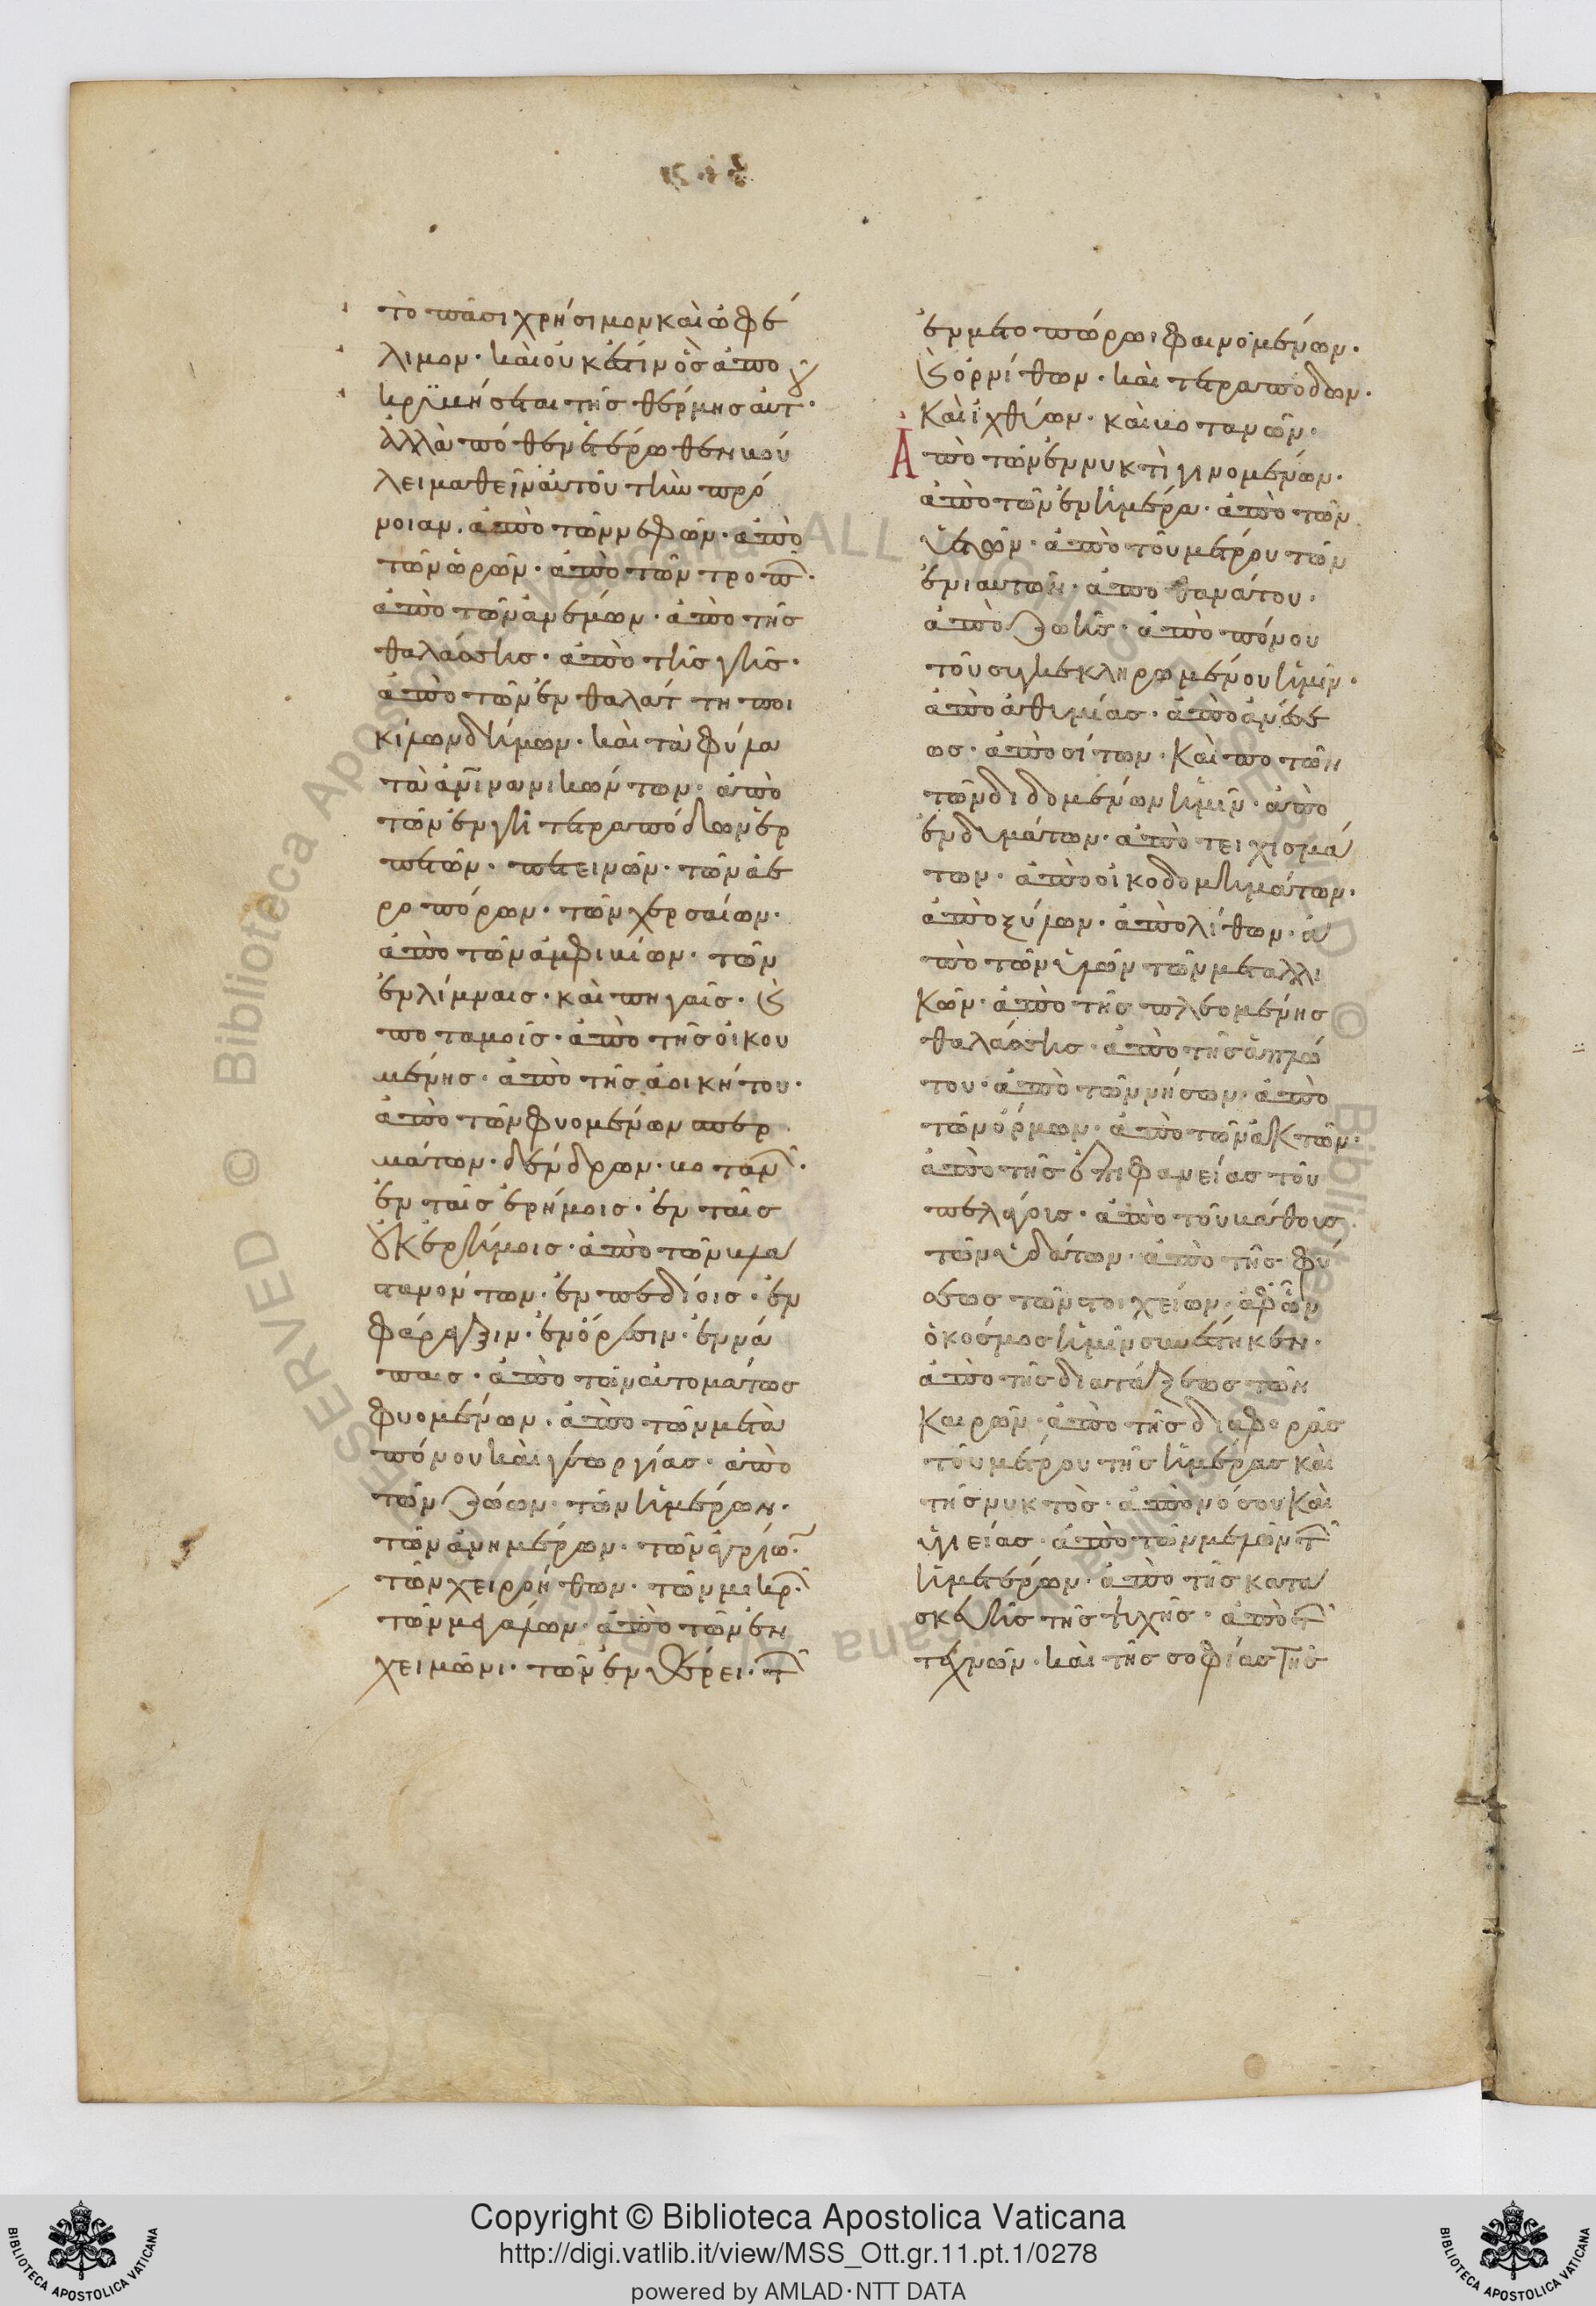 τὸ πᾶσι χρήσιμον καὶ ὠφέ
λιμον· καὶ οὐκ ἔστιν ὃς ἀπο
κρυβήσεται τῆς θέρμης αὐτοῦ·
ἀλλὰ πόθεν ἑτέρωθεν βού
λει μαθεῖν αὐτοῦ τὴν πρό
νοιαν. ἀπὸ τῶν νεφῶν· ἀπὸ
τῶν ὡρῶν· ἀπὸ τῶν τροπῶν·
ἀπὸ τῶν ἀνέμων· ἀπὸ τῆς
θαλάσσης· ἀπὸ τῆς γῆς·
ἀπὸ τῶν ἐν θαλάττη ποι
κίλων δήμων· καὶ τὰ κύμα
τὰ
τῶν ἐν γῆ τετραπόδων ἑρ
πετῶν· πετεινῶν· τῶν ἀε
ροπόρων· τῶν χερσαίων·
ἀπὸ τῶν ἀμφιβίων· τῶν
ἐν λίμναις· καὶ πηγαῖς· καὶ
ποταμοῖς· ἀπὸ τῆς οἰκου
μένης· ἀπὸ τῆς ἀοικήτου·
ἀπὸ τῶν φυομένων σπερ
μάτων· δένδρων· βοτανῶν·
ἐν ταῖς ἐρήμοις· ἐν ταῖς
οὐκ ἐρήμοις· ἀπὸ τῶν βλα
στανόντων· ἐν πεδίοις· ἐν
φάραγξιν· ἐν ὄρεσιν· ἐν νά
παις· ἀπὸ τῶν αὐτομάτως
φυομένων. ἀπὸ τῶν μετὰ
πόνου καὶ γεωργίας· ἀπὸ
τῶν ζώων· τῶν ἡμέρων·
τῶν ἀνημέρων· τῶν ἀγρίων·
τῶν χειροήθων· τῶν μικρῶν·
τῶν μεγάλων· ἀπὸ τῶν ἐν
χειμῶνι· τῶν ἐν θέρει· τῶν
ἐν μετοπώρωι φαινομένων·
καὶ ὀρνίθων· καὶ τετραπόδων·
καὶ ἰχθύων· καὶ βοτανῶν·
Ἀπὸ τῶν ἐν νυκτὶ γινομένων·
ἀπὸ τῶν ἐν ἡμέρα· ἀπὸ τῶν
ὑετῶν· ἀπὸ τοῦ μέτρου τῶν
ἐνιαυτῶν· ἀπὸ θανάτου·
ἀπὸ ζωῆς· ἀπὸ πόνου
τοῦ συγκεκληρωμένου ἡμῖν·
ἀπὸ ἀθυμίας· ἀπὸ ἀνέσε
ως· ἀπὸ σίτων· καὶ ποτῶν
τῶν διδομένων ἡμῖν· ἀπὸ
ἐνδυμάτων· ἀπὸ τειχισμά
των· ἀπὸ οἰκοδομημάτων·
ἀπὸ ξύλων· ἀπὸ λίθων· ἀ
πὸ τῶν ὑλῶν τῶν μεταλλι
κῶν· ἀπὸ τῆς πλεομένης
θαλάσσης· ἀπὸ τῆς ἀπλώ
του· ἀπὸ τῶν νήσων· ἀπὸ
τῶν ὅρμων· ἀπὸ τῶν ἀκτῶν·
ἀπὸ τῆς ἐπιφανείας τοῦ
πελάγους· ἀπὸ τοῦ βάθους
τῶν ὑδάτων· ἀπὸ τῆς φύ
σεως τῶν στοιχείων· ἀφ' ὧν
ὁ κόσμος ἡμῖν συνέστηκεν·
ἀπὸ τῆς διατάξεως τῶν
καιρῶν· ἀπὸ τῆς διαφορᾶς
τοῦ μέτρου τῆς ἡμέρας καὶ
τῆς νυκτὸς· ἀπὸ νόσου καὶ
ὑγιείας· ἀπὸ τῶν μελῶν τῶν
ἡμετέρων· ἀπὸ τῆς κατα
σκευῆς τῆς ψυχῆς· ἀπὸ τῶν
τεχνῶν· καὶ τῆς σοφίας τῆς
Copyright © Biblioteca Apostolica Vaticana
http://digi.vatlib.it/view/MSS_Ott.gr.11.pt.1/0278
powered by AMLAD·NTT DATA